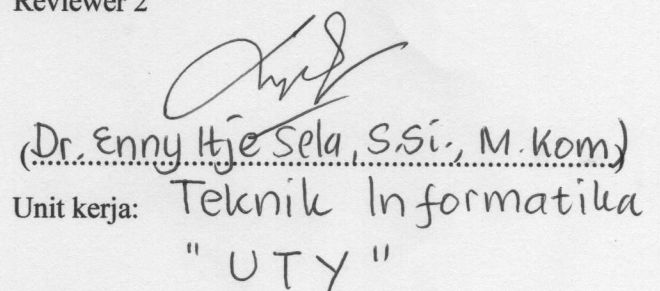 Reviewer 2
(Dr. Enny Itje Sela, S.Si., M.Kom)
Unit kerja: Teknik Informatika
"UTY"